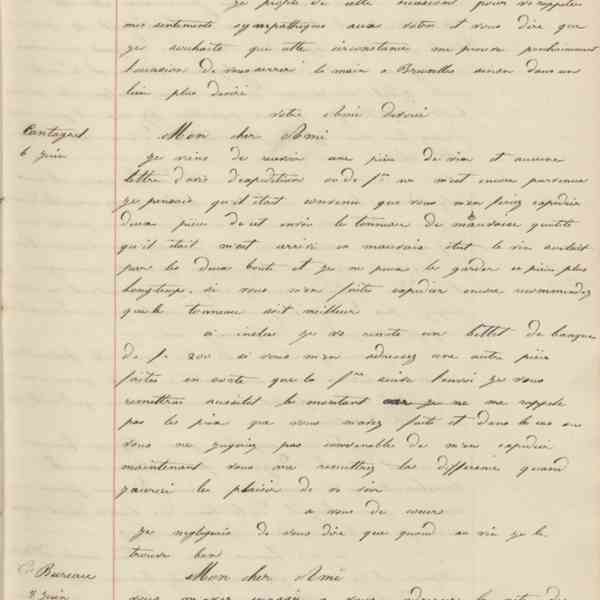 Je profite de cette occasion pour vs rappeler
mes sentiments sympathiques aux votres et vous dire que
je souhaite que cette circonstance me procure prochainement
l'occasion de vous serrer la main a Bruxelles sinon dans un
lieu plus désiré
votre Ami dévoué
Cantagrel
6 Juin
Mon cher Ami
Je viens de recevoir une pièce de vin et aucune
lettre d'avis d'expédition ou de fre ne m'est encore parvenue
je pensais qu'il était convenu que vous m'en feriez expédier
deux pièces de cet envoi le tonneau de mauvaise qualité
qu'il était m'est arrivé en mauvais état le vin coulait
par les deux bouts et je ne peux le garder en pièce plus
longtemps. si vous m'en faites expédier encore recommandez
que le tonneau soit meilleur
ci inclus je vs remets un billet de banque
de f. 200 si vous m'en adressez une autre pièce
faites en sorte que la fre suive l'envoi je vous
remettrai aussitôt le montant je ne me rappelle
pas les prix que vous m'avez faits et dans le cas ou
vous ne jugeriez pas convenable de m'en expédier
maintenant vous me remettrez la différence quand
j'aurai le plaisir de vs voir
a vous de coeur
Je négligeais de vous dire que quand au vin je le
trouve bon
Bureau
8 Juin
Mon cher Ami
vous